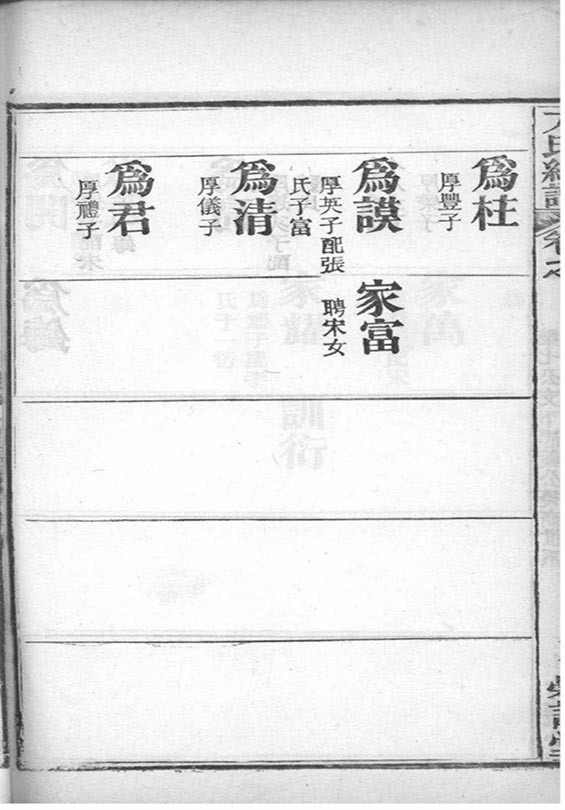 爲柱
厚豐子
爲謨
厚英子配張
氏子富
家富
聘宋女
爲清
厚儀子
爲君
厚禮子